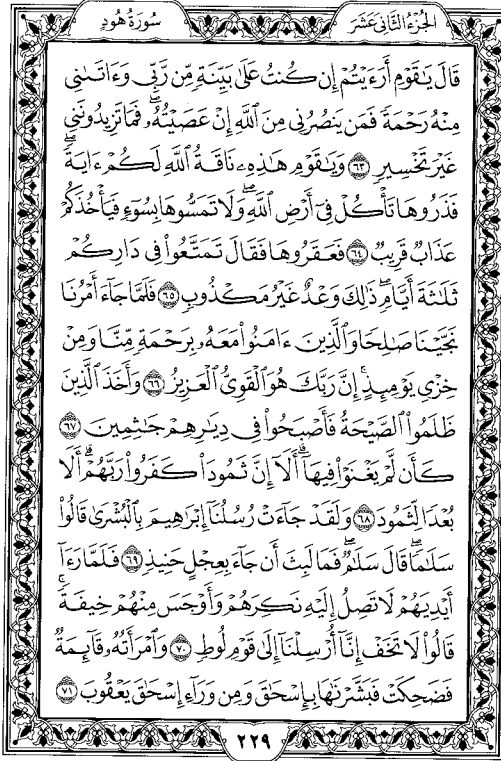 الجزء الثاني عشر
سورة هود
قَالَ يَٰقَوْمِ أَرَءَيْتُمْ إِن كُنتُ عَلَىٰ بَيِّنَةٍ مِّن رَّبِّى وَءَاتَىٰنِى
مِنْهُ رَحْمَةً فَمَن يَنصُرُنِى مِنَ ٱللَّهِ إِنْ عَصَيْتُهُۥ ۖ فَمَا تَزِيدُونَنِى
غَيْرَ تَخْسِيرٍ ٦٣ وَيَٰقَوْمِ هَٰذِهِۦ نَاقَةُ ٱللَّهِ لَكُمْ ءَايَةً ۖ
فَذَرُوهَا تَأْكُلْ فِىٓ أَرْضِ ٱللَّهِ ۖ وَلَا تَمَسُّوهَا بِسُوٓءٍ فَيَأْخُذَكُمْ
عَذَابٌ قَرِيبٌ ٦٤ فَعَقَرُوهَا فَقَالَ تَمَتَّعُوا۟ فِى دَارِكُمْ
ثَلَٰثَةَ أَيَّامٍ ۖ ذَٰلِكَ وَعْدٌ غَيْرُ مَكْذُوبٍ ٦٥ فَلَمَّا جَآءَ أَمْرُنَا
نَجَّيْنَا صَٰلِحًا وَٱلَّذِينَ ءَامَنُوا۟ مَعَهُۥ بِرَحْمَةٍ مِّنَّا وَمِنْ
خِزْىِ يَوْمِئِذٍ ۗ إِنَّ رَبَّكَ هُوَ ٱلْقَوِىُّ ٱلْعَزِيزُ ٦٦ وَأَخَذَ ٱلَّذِينَ
ظَلَمُوا۟ ٱلصَّيْحَةُ فَأَصْبَحُوا۟ فِى دِيَٰرِهِمْ جَٰثِمِينَ ٦٧
كَأَن لَّمْ يَغْنَوْا۟ فِيهَآ ۗ أَلَآ إِنَّ ثَمُودَا۟ كَفَرُوا۟ رَبَّهُمْ ۗ أَلَا
بُعْدًا لِّثَمُودَ ٦٨ وَلَقَدْ جَآءَتْ رُسُلُنَآ إِبْرَٰهِيمَ بِٱلْبُشْرَىٰ قَالُوا۟
سَلَٰمًا ۖ قَالَ سَلَٰمٌ ۖ فَمَا لَبِثَ أَن جَآءَ بِعِجْلٍ حَنِيذٍ ٦٩ فَلَمَّا رَءَآ
أَيْدِيَهُمْ لَا تَصِلُ إِلَيْهِ نَكِرَهُمْ وَأَوْجَسَ مِنْهُمْ خِيفَةً ۚ
قَالُوا۟ لَا تَخَفْ إِنَّآ أُرْسِلْنَآ إِلَىٰ قَوْمِ لُوطٍ ٧٠ وَٱمْرَأَتُهُۥ قَآئِمَةٌ
فَضَحِكَتْ فَبَشَّرْنَٰهَا بِإِسْحَٰقَ وَمِن وَرَآءِ إِسْحَٰقَ يَعْقُوبَ ٧١
٢٢٩